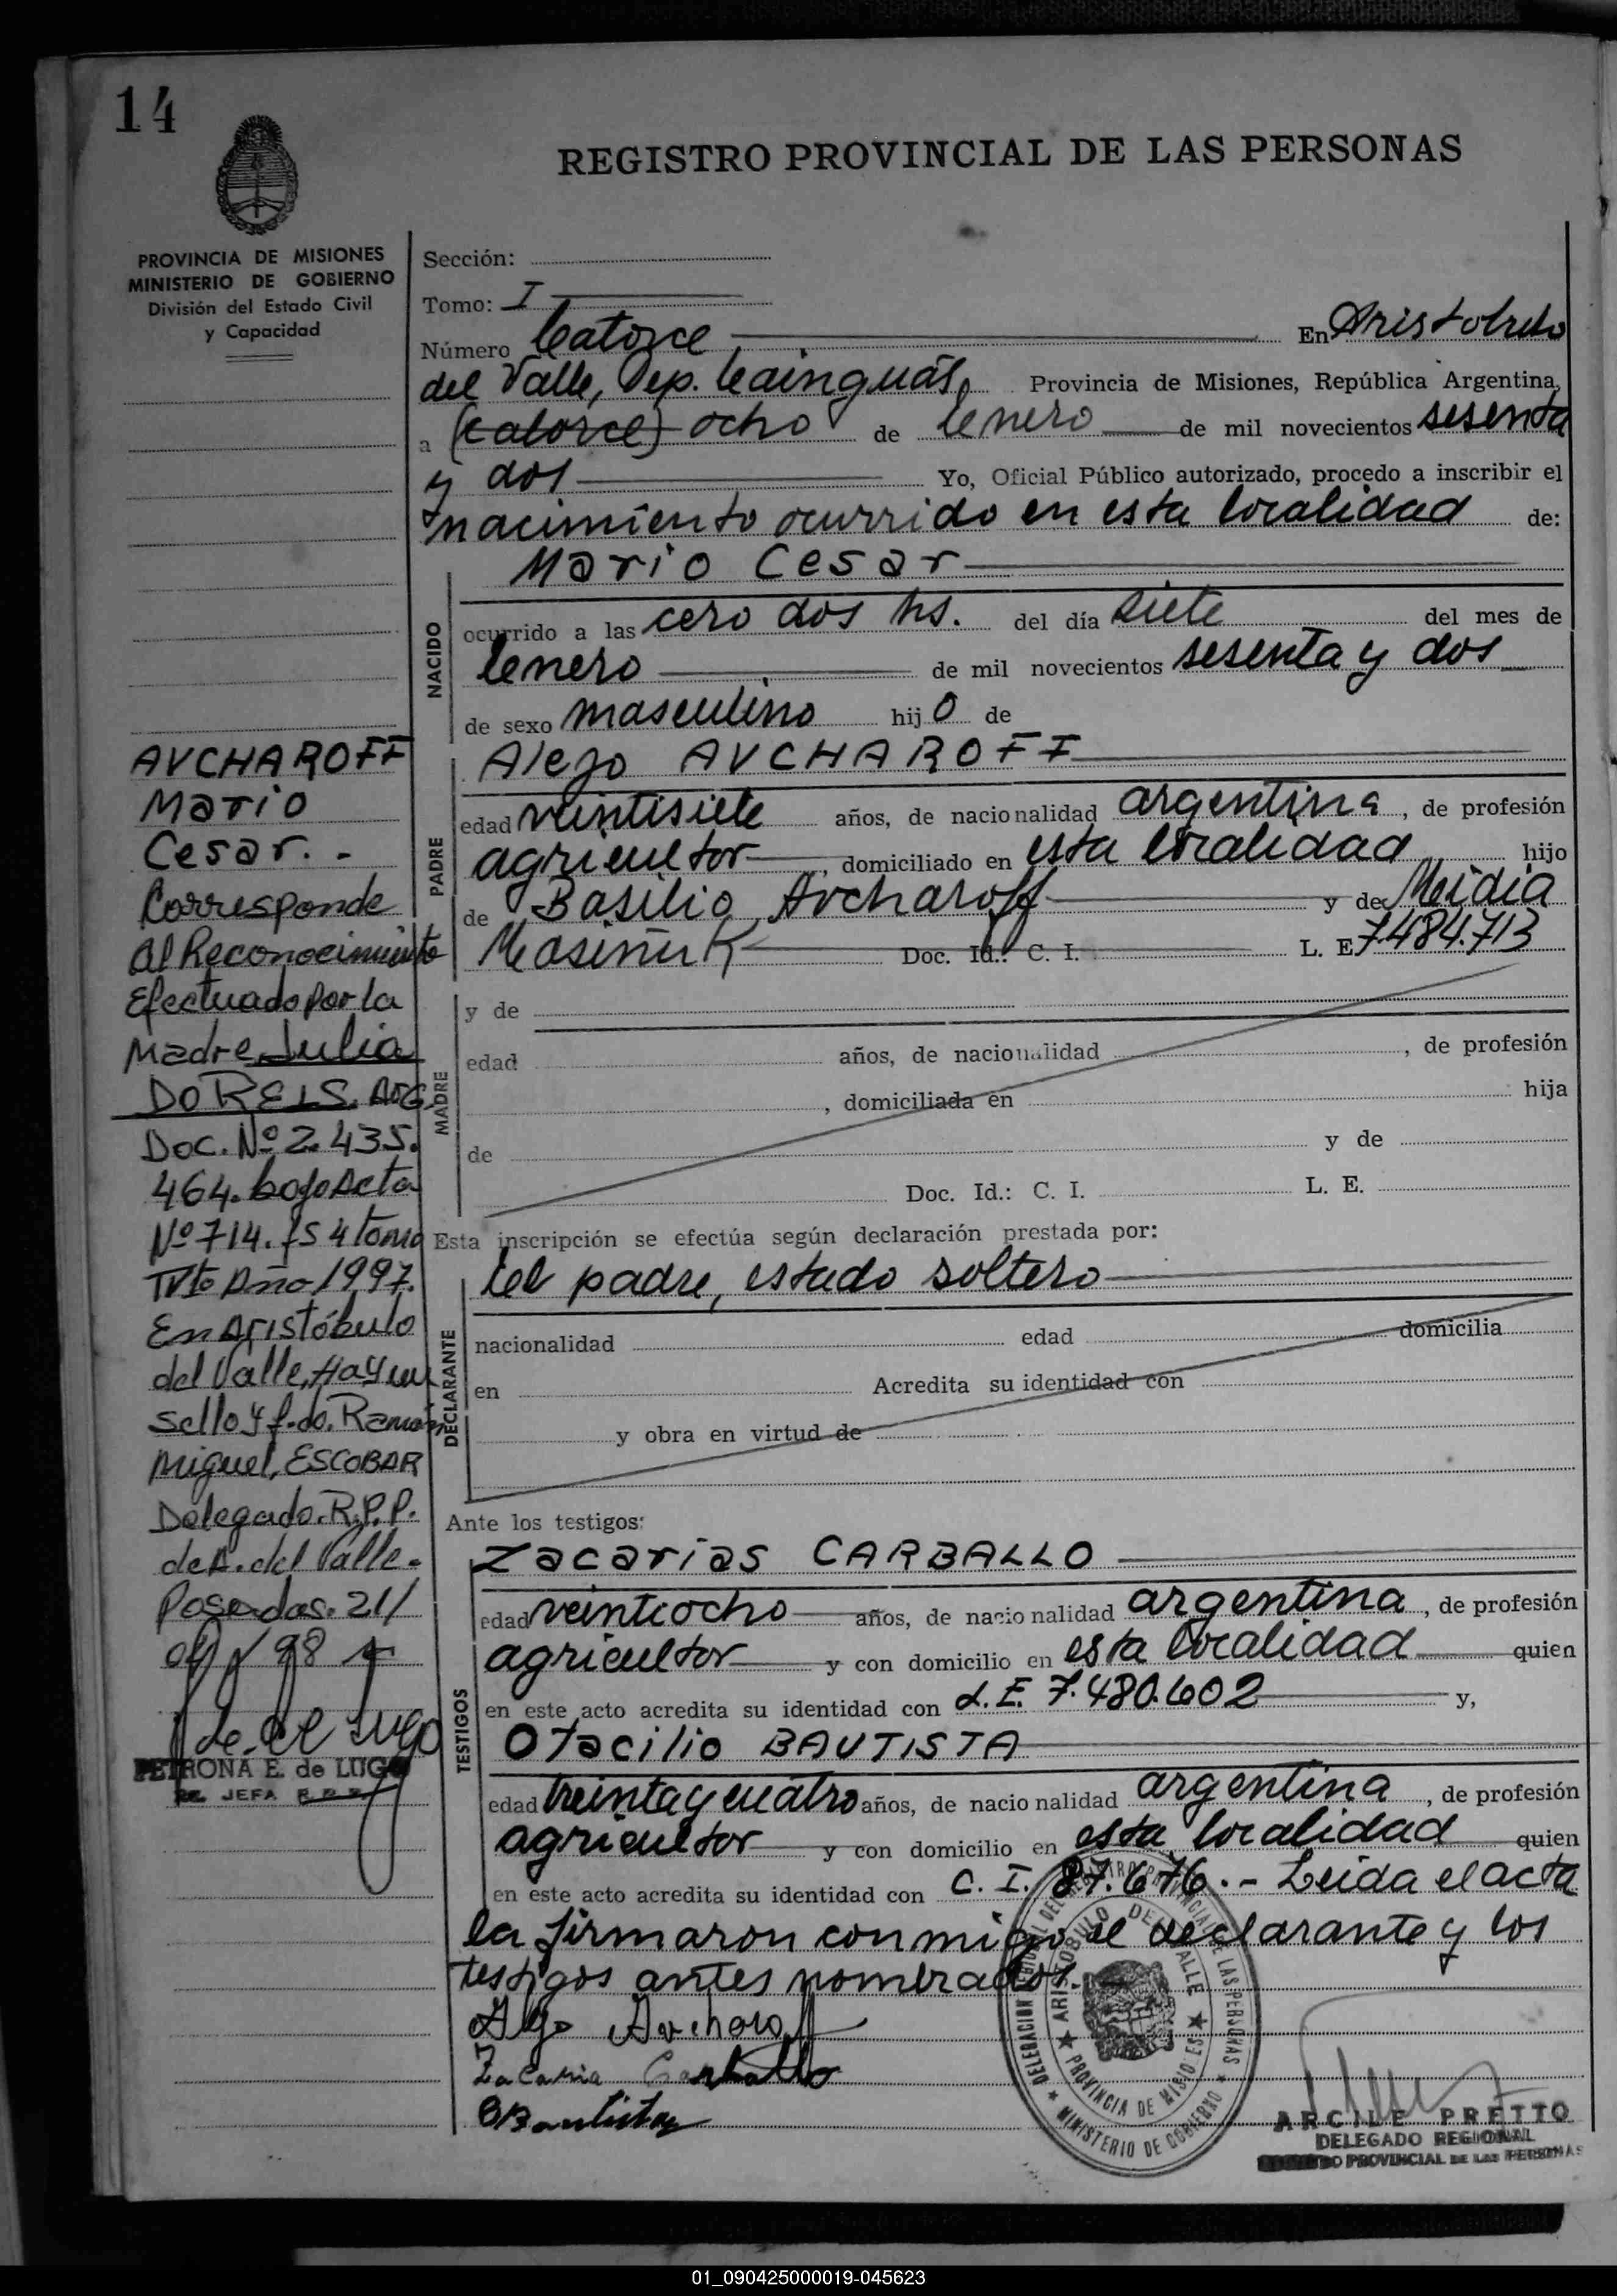 14
REGISTRO PROVINCIAL DE LAS PERSONAS
PROVINCIA DE MISIONES
MINISTERIO DE GOBIERNO
División del Estado Civil
y Capacidad
Sección:
Tomo: I
Número Catorce En Aristobulo
del Valle, Dep. Cainguás, Provincia de Misiones, República Argentina,
a (catorce) ocho de Enero de mil novecientos sesenta
y dos Yo, Oficial Público autorizado, procedo a inscribir el
nacimiento ocurrido en esta localidad de:
Mario Cesar
NACIDO
ocurrido a las cero dos hs. del día siete del mes de
Enero de mil novecientos sesenta y dos
de sexo masculino hijo de
PADRE
Alejo AVCHAROFF
edad veintisiete años, de nacionalidad argentina, de profesión
agricultor, domiciliado en esta localidad hijo
de Basilio Avcharoff y de
Doc. Id.: C. I. L. E. 7.484.713
MADRE
y de
edad años, de nacionalidad , de profesión
, domiciliada en hija
de y de
Doc. Id.: C. I. L. E.
Esta inscripción se efectúa según declaración prestada por:
DECLARANTE
el padre, estado soltero
nacionalidad edad domicilia
en Acredita su identidad con
y obra en virtud de
Ante los testigos:
TESTIGOS
Zacarias CARBALLO
edad veintiocho años, de nacionalidad argentina, de profesión
agricultor y con domicilio en esta localidad quien
en este acto acredita su identidad con L. E. 7.480.602 y,
Otacilio BAUTISTA
edad treinta y cuatro años, de nacionalidad argentina, de profesión
agricultor y con domicilio en esta localidad quien
en este acto acredita su identidad con C. I. 87.676.- Leida el acta
la firmaron conmigo el declarante y los
testigos antes nombrados.
Alejo Avcharoff
Zacaria Carballo
OBautista
DELEGACION REGIONAL DEL REGISTRO PROVINCIAL DE LAS PERSONAS
MINISTERIO DE GOBIERNO
ARISTOBULO DEL VALLE
PROVINCIA DE MISIONES
ARCILE PRETTO
DELEGADO REGIONAL
PROVINCIAL DE LAS PERSONAS
AVCHAROFF
Mario
Cesar. -
Corresponde
al Reconocimiento
Efectuado por la
Madre Julia
DO REIS. Arg.
Doc. Nº 2.435.
464. bajo Acta
Nº 714. fs 4 tomo
IVto Año 1997.
En Aristóbulo
del Valle, Hay un
sello y f.do. Ramón
Miguel, ESCOBAR
Delegado. R.P.P.
de A. del Valle.
Posadas. 21/
98
de Lugo
PETRONA E. de LUGO
JEFA
01_090425000019-045623